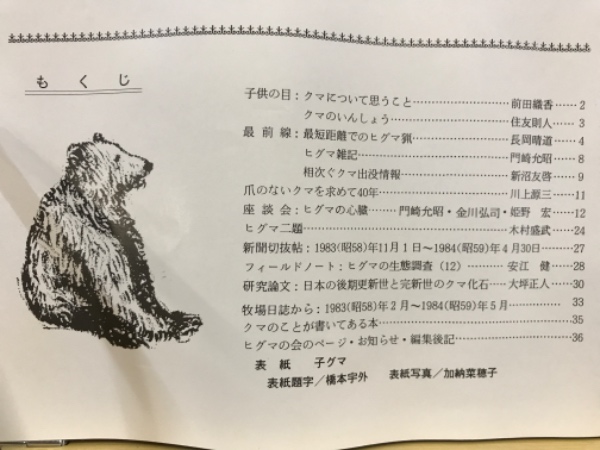 もくじ
子供の目：クマについて思うこと……………前田織香……2
クマのいんしょう……………住友則人……3
最前線：最短距離でのヒグマ猟……………長岡晴道……4
ヒグマ雑記……………門崎允昭……8
相次ぐクマ出没情報……………新沼友啓……9
爪のないクマを求めて40年……………川上源三……11
座談会：ヒグマの心臓……門崎允昭・金川弘司・姫野 宏……12
ヒグマ二題……………木村盛武……24
新聞切抜帖：1983(昭58)年11月1日～1984(昭59)年4月30日……27
フィールドノート：ヒグマの生態調査（12）…………安江 健……28
研究論文：日本の後期更新世と完新世のクマ化石……大坪正人……30
牧場日誌から：1983(昭58)年2月～1984(昭59)年5月……………33
クマのことが書いてある本……………35
ヒグマの会のページ・お知らせ・編集後記……………36
表紙 子グマ
表紙題字／橋本字外 表紙写真／加納菜穂子